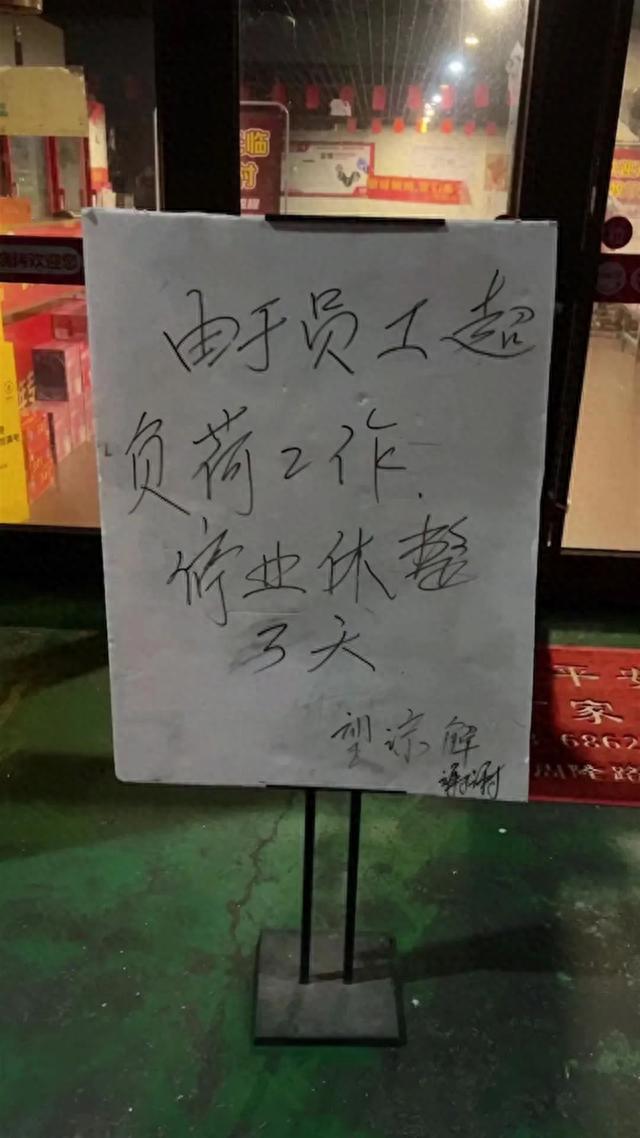 由于员工超
负荷工作.
停业休整
3天
望谅解
谢谢
欢迎您
临
时
平安
家
6862
隆路